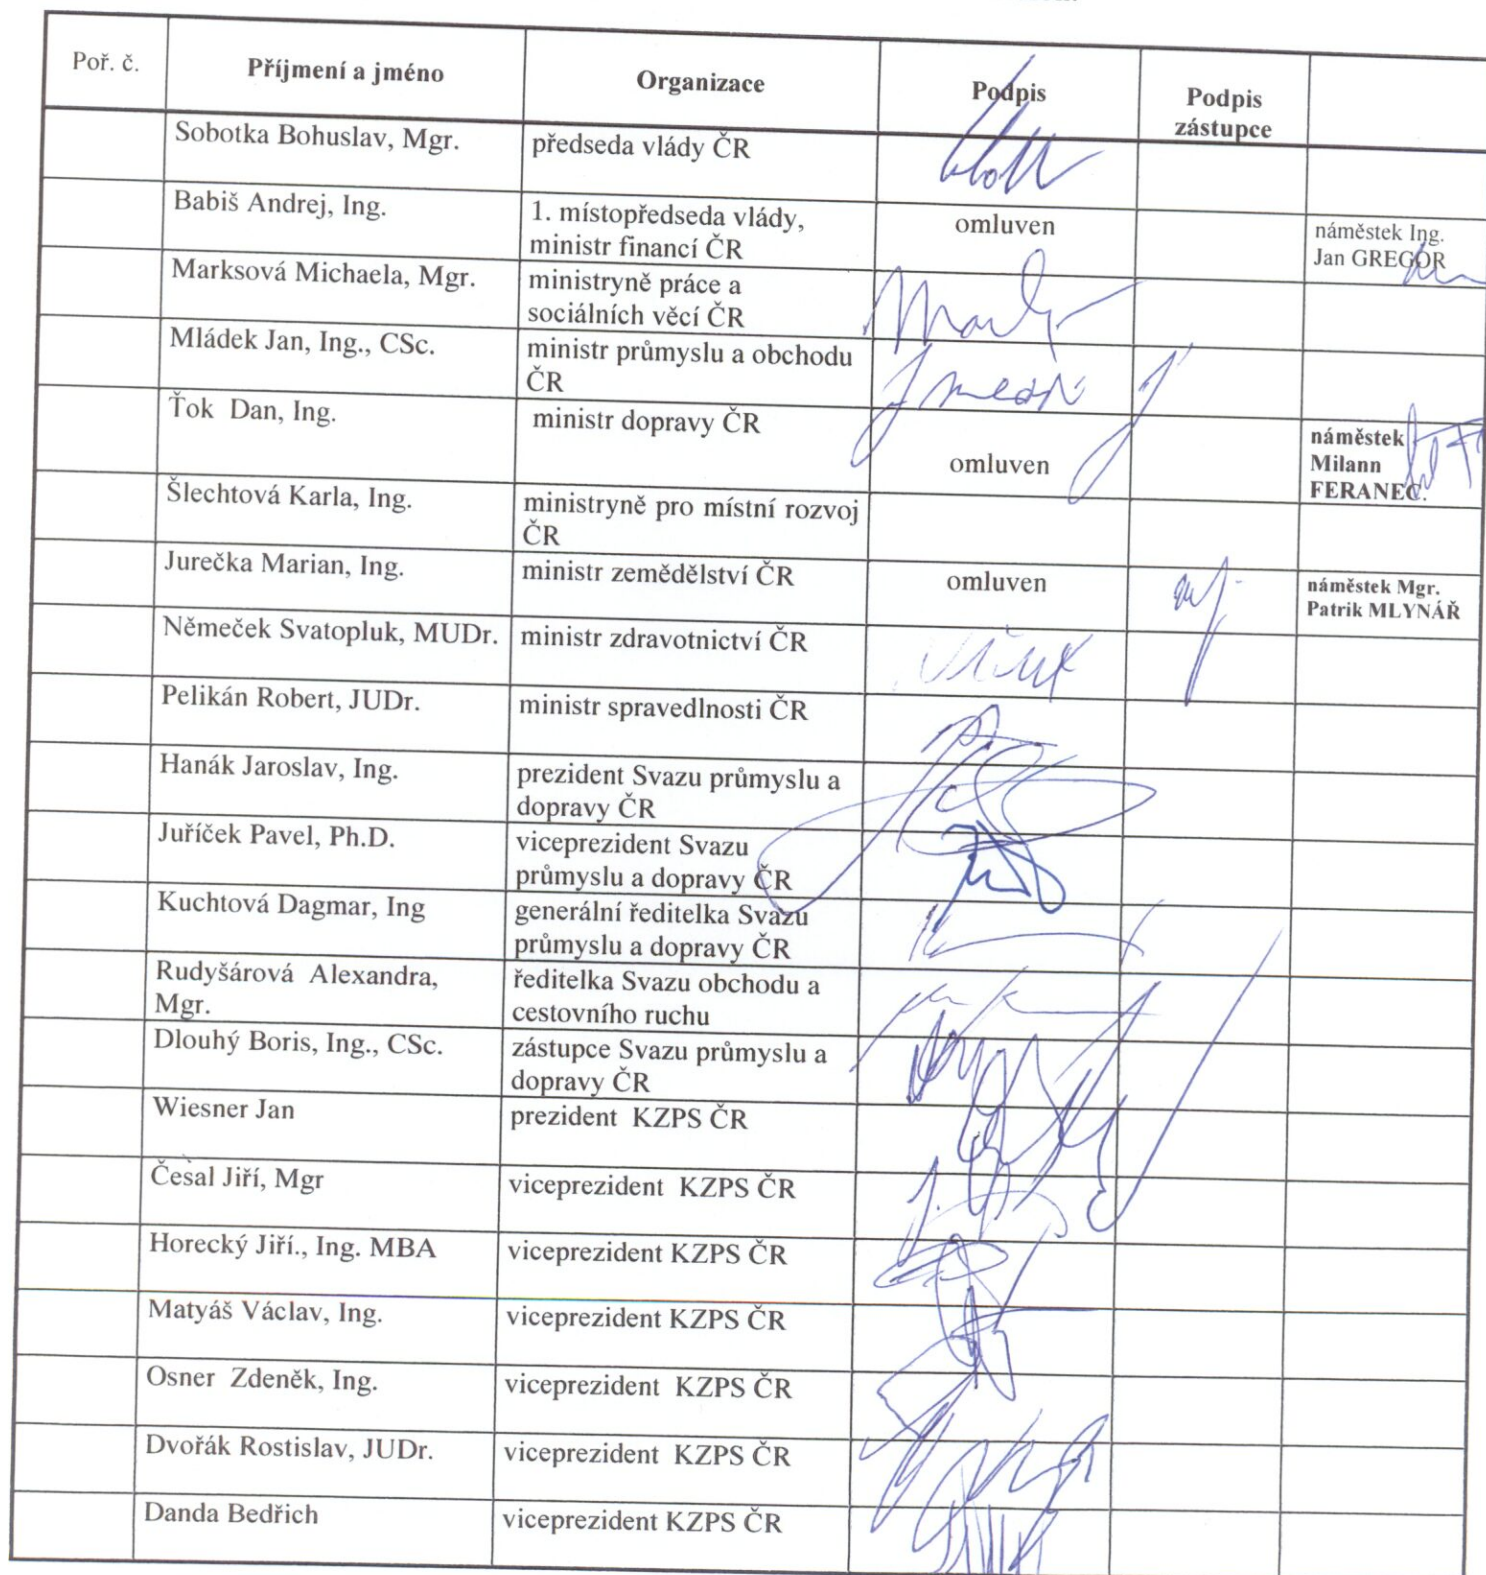 Poř. č.
Příjmení a jméno
Organizace
Podpis
Podpis
zástupce
Sobotka Bohuslav, Mgr.
předseda vlády ČR
Babiš Andrej, Ing.
1. místopředseda vlády,
ministr financí ČR
omluven
náměstek Ing.
Jan GREGOR
Marksová Michaela, Mgr.
ministryně práce a
sociálních věcí ČR
Mládek Jan, Ing., CSc.
ministr průmyslu a obchodu
ČR
Ťok Dan, Ing.
ministr dopravy ČR
omluven
náměstek
Milann
FERANEC.
Šlechtová Karla, Ing.
ministryně pro místní rozvoj
ČR
Jurečka Marian, Ing.
ministr zemědělství ČR
omluven
náměstek Mgr.
Patrik MLYNÁŘ
Němeček Svatopluk, MUDr.
ministr zdravotnictví ČR
Pelikán Robert, JUDr.
ministr spravedlnosti ČR
Hanák Jaroslav, Ing.
prezident Svazu průmyslu a
dopravy ČR
Juříček Pavel, Ph.D.
viceprezident Svazu
průmyslu a dopravy ČR
Kuchtová Dagmar, Ing
generální ředitelka Svazu
průmyslu a dopravy ČR
Rudyšárová Alexandra,
Mgr.
ředitelka Svazu obchodu a
cestovního ruchu
Dlouhý Boris, Ing., CSc.
zástupce Svazu průmyslu a
dopravy ČR
Wiesner Jan
prezident KZPS ČR
Česal Jiří, Mgr
viceprezident KZPS ČR
Horecký Jiří., Ing. MBA
viceprezident KZPS ČR
Matyáš Václav, Ing.
viceprezident KZPS ČR
Osner Zdeněk, Ing.
viceprezident KZPS ČR
Dvořák Rostislav, JUDr.
viceprezident KZPS ČR
Danda Bedřich
viceprezident KZPS ČR